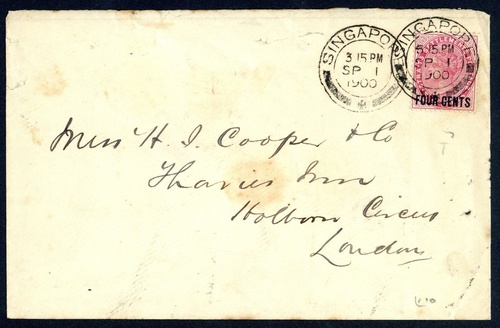 SINGAPORE
3 15 PM
SP 1
1900
SINGAPORE
3 15 PM
SP 1
1900
FOUR CENTS
Mess H. J. Cooper & Co
Thavies Inn
Holborn Circus
London